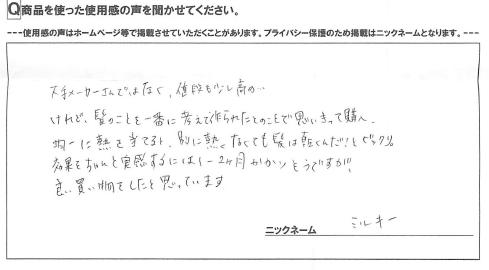 Q商品を使った使用感の声を聞かせてください。
---使用感の声はホームページ等で掲載させていただくことがあります。プライバシー保護のため掲載はニックネームとなります。---
大手メーカーさんではなく、値段も少し高め…
けれど、髪のことを一番に考えて作られたとのことで思いきって購入。
均一に熱を当てると、別に熱くなくても髪は乾くんだ!とビックリ!!
効果をちゃんと実感するには1~2ヶ月かかりそうですが、
良い買い物をしたと思っています
ニックネーム ミルキー